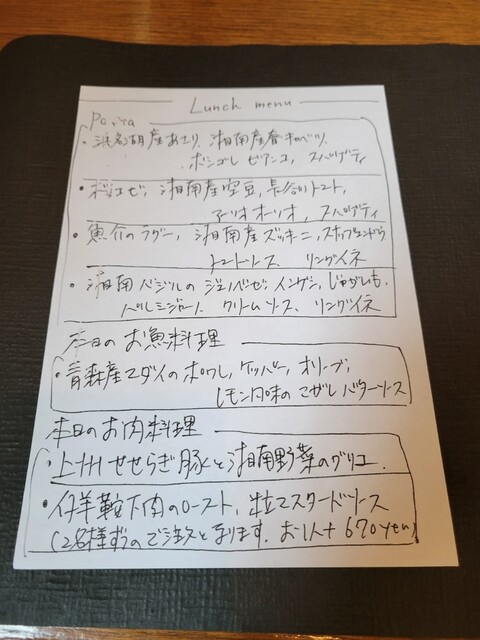 Lunch menu
Pasta
・浜名湖産あさり、湘南産春キャベツ、
ボンゴレ ビアンコ、スパゲティ
・桜エビ、湘南産空豆、長谷川トマト、
アーリオオーリオ、スパゲティ
・魚介のラグー、湘南産ズッキーニ、スナップエンドウ
トマトソース、リングイネ
・湘南バジルのジェノベーゼ、インゲン、じゃがいも、
パルミジャーノ クリームソース、リングイネ
本日のお魚料理
・青森産マダイのポワレ、ケッパー、オリーブ、
レモン風味のこがしバターソース
本日のお肉料理
・上州せせらぎ豚と湘南野菜のグリエ.
・仔羊鞍下肉のロースト、粒マスタードソース
(2名様ずつのご注文となります. お1人+670yen)